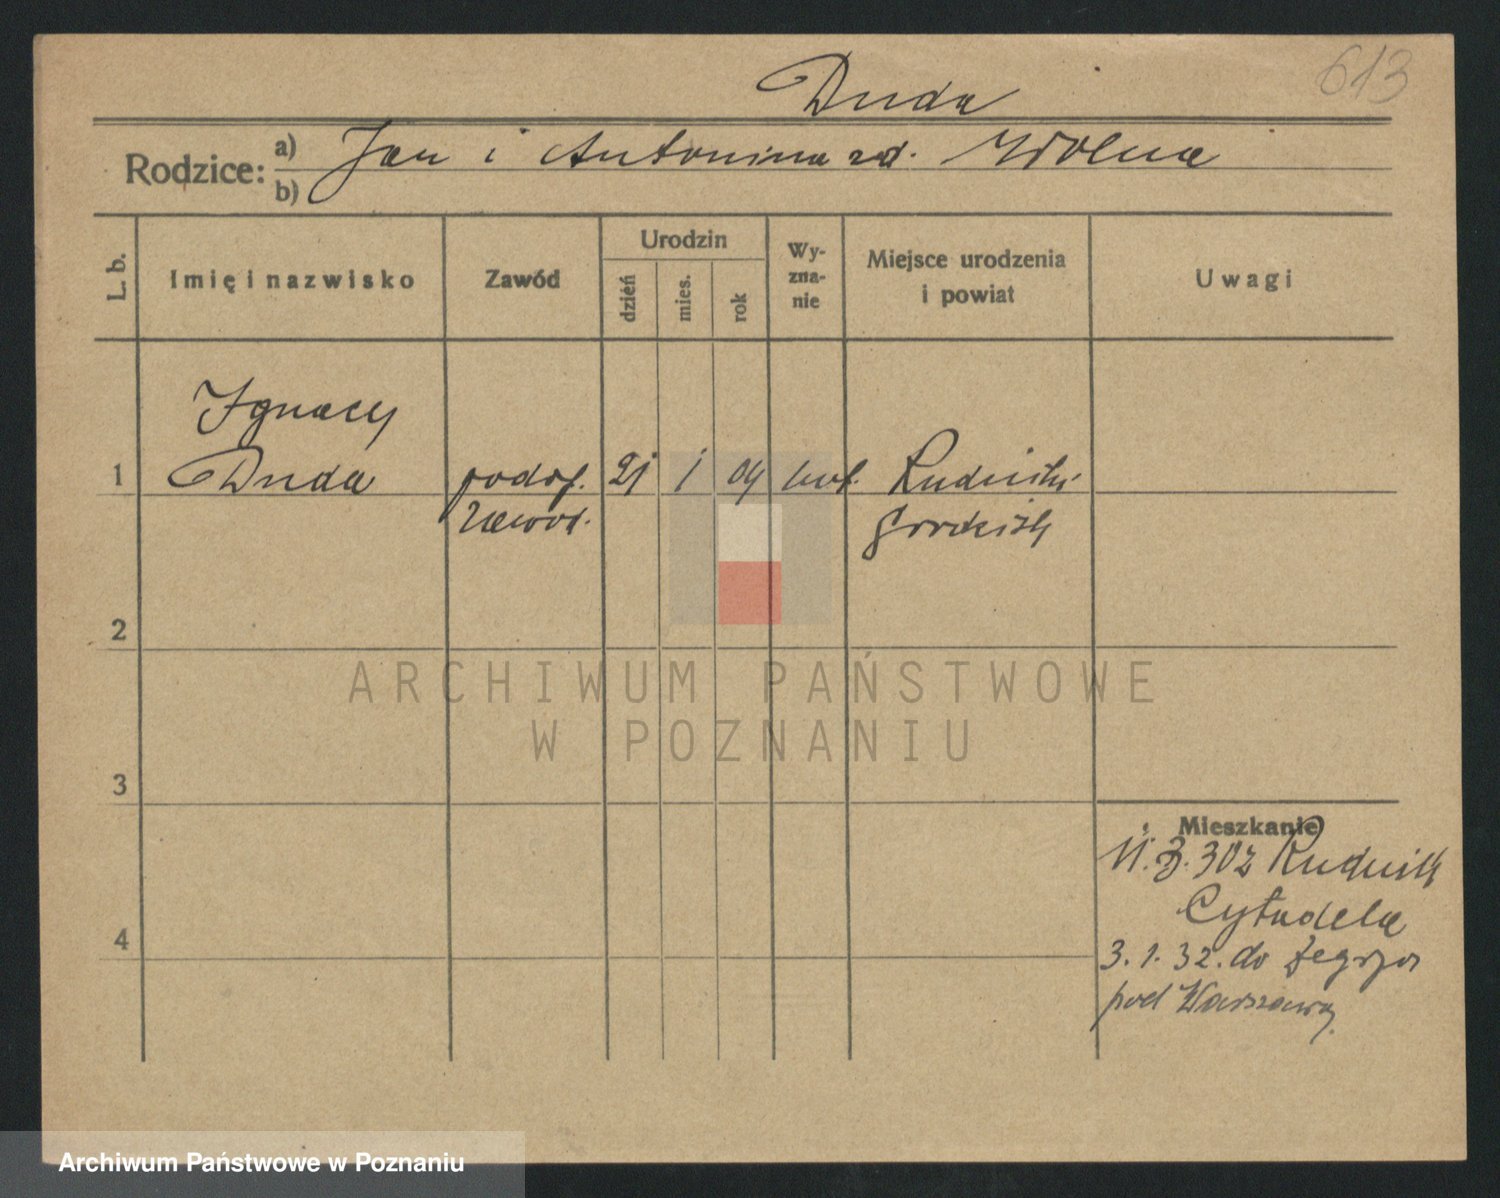 613
Duda
Rodzice: a) Jan i Antonina zd. Wolna
b)
L. b.
Imię i nazwisko
Zawód
Urodzin
dzień
mies.
rok
Wy-
zna-
nie
Miejsce urodzenia
i powiat
Uwagi
Ignacy
1 Duda podof. 21 1 04
zawod.
2
3
4
Mieszkanie
3. 302 Rudnik
Cytadela
3. 1. 32. do Zegrza
pod Warszawą.
ARCHIWUM PAŃSTWOWE
W POZNANIU
Archiwum Państwowe w Poznaniu